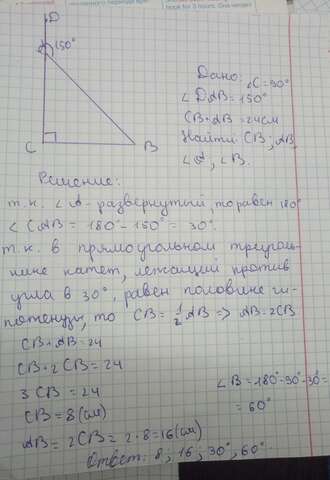 book for 3 hours. Она читает
D
150°
C
B
Дано: ∠C=90°
∠DAB=150°
CB+AB=24см
Найти: CB; AB,
∠A, ∠B.
Решение:
т.к. ∠A-развернутый, то равен 180°
∠CAB = 180°-150° = 30°.
т.к. в прямоугольном треуголь-
нике катет, лежащий против
угла в 30°, равен половине ги-
потенузы, то CB=1/2AB => AB=2CB
CB+AB=24
CB+2CB=24
3CB=24
CB=8(см)
AB=2CB=2·8=16(см)
∠B=180°-90°-30°=
=60°
Ответ: 8; 16; 30°, 60°